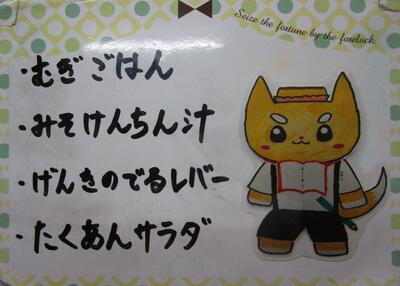 Seize the fortune by the forelock.
・むぎごはん
・みそけんちん汁
・げんきのでるレバー
・たくあんサラダ